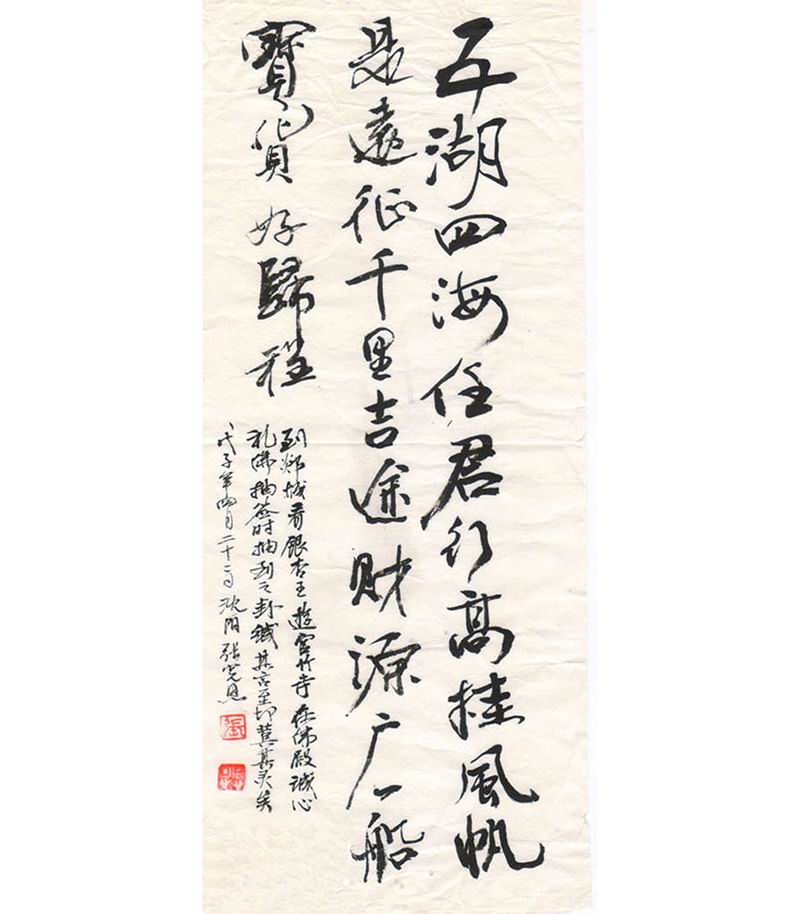 五湖四海任君行高挂風帆
是遠征千里吉途财源广一船
寶貨好歸程
到郯城看銀杏王遊官竹寺在佛殿诚心
礼佛抽签时抽到之卦籤其言至切冀其灵矣
戊子年四月二十二日沈阳张宪